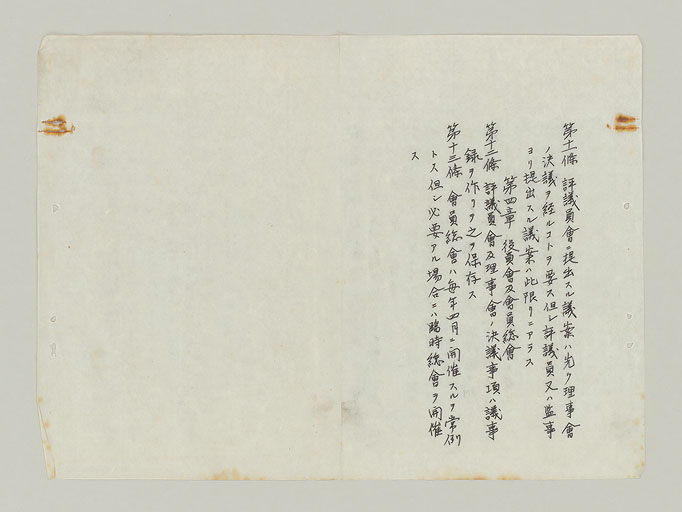 第十一條 評議員會ニ提出スル議案ハ先ク理事會
ノ決議ヲ経ルコトヲ要ス但シ評議員又ハ監事
ヨリ提出スル議案ハ此限リニアラス
第四章 役員會及會員総會
第十二條 評議員會及理事會ノ決議事項ハ議事
録ヲ作リ之ヲ保存ス
第十三條 會員総會ハ毎年四月ニ開催スルヲ常例
トス但シ必要アル場合ニハ臨時総會ヲ開催
ス